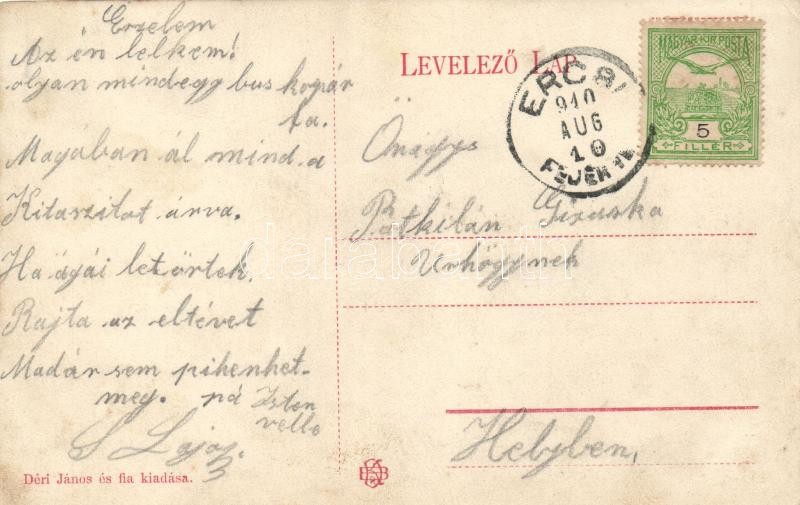 Érzelem
Az én lelkem!
olyan mindegy bus kopár
fa.
Magában ál mind a
Kitaszitot árva.
Ha ágái letörtek.
Rajta az eltévet
Madár sem pihenhet-
meg. pá Isten
vello
S Lajos.
Déri János és fia kiadása.
LEVELEZŐ LAP
ERCSI
910
AUG
10
FEJÉR
MAGYAR KIR. POSTA
5
FILLÉR
Önagys
Patkilán Gizuska
Urhögynek
Helyben,